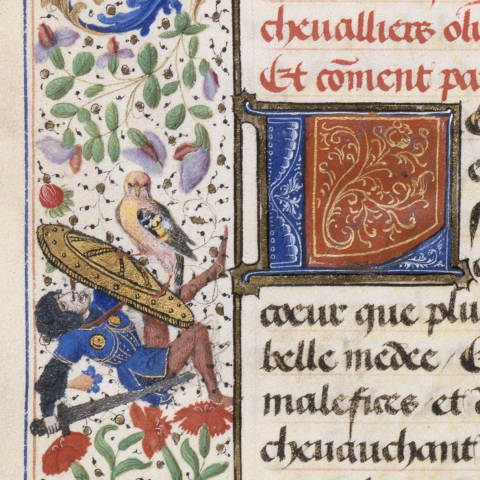 cheualliers
Et cōment
L
coeur que
belle medee /
malefices et
cheuauchant